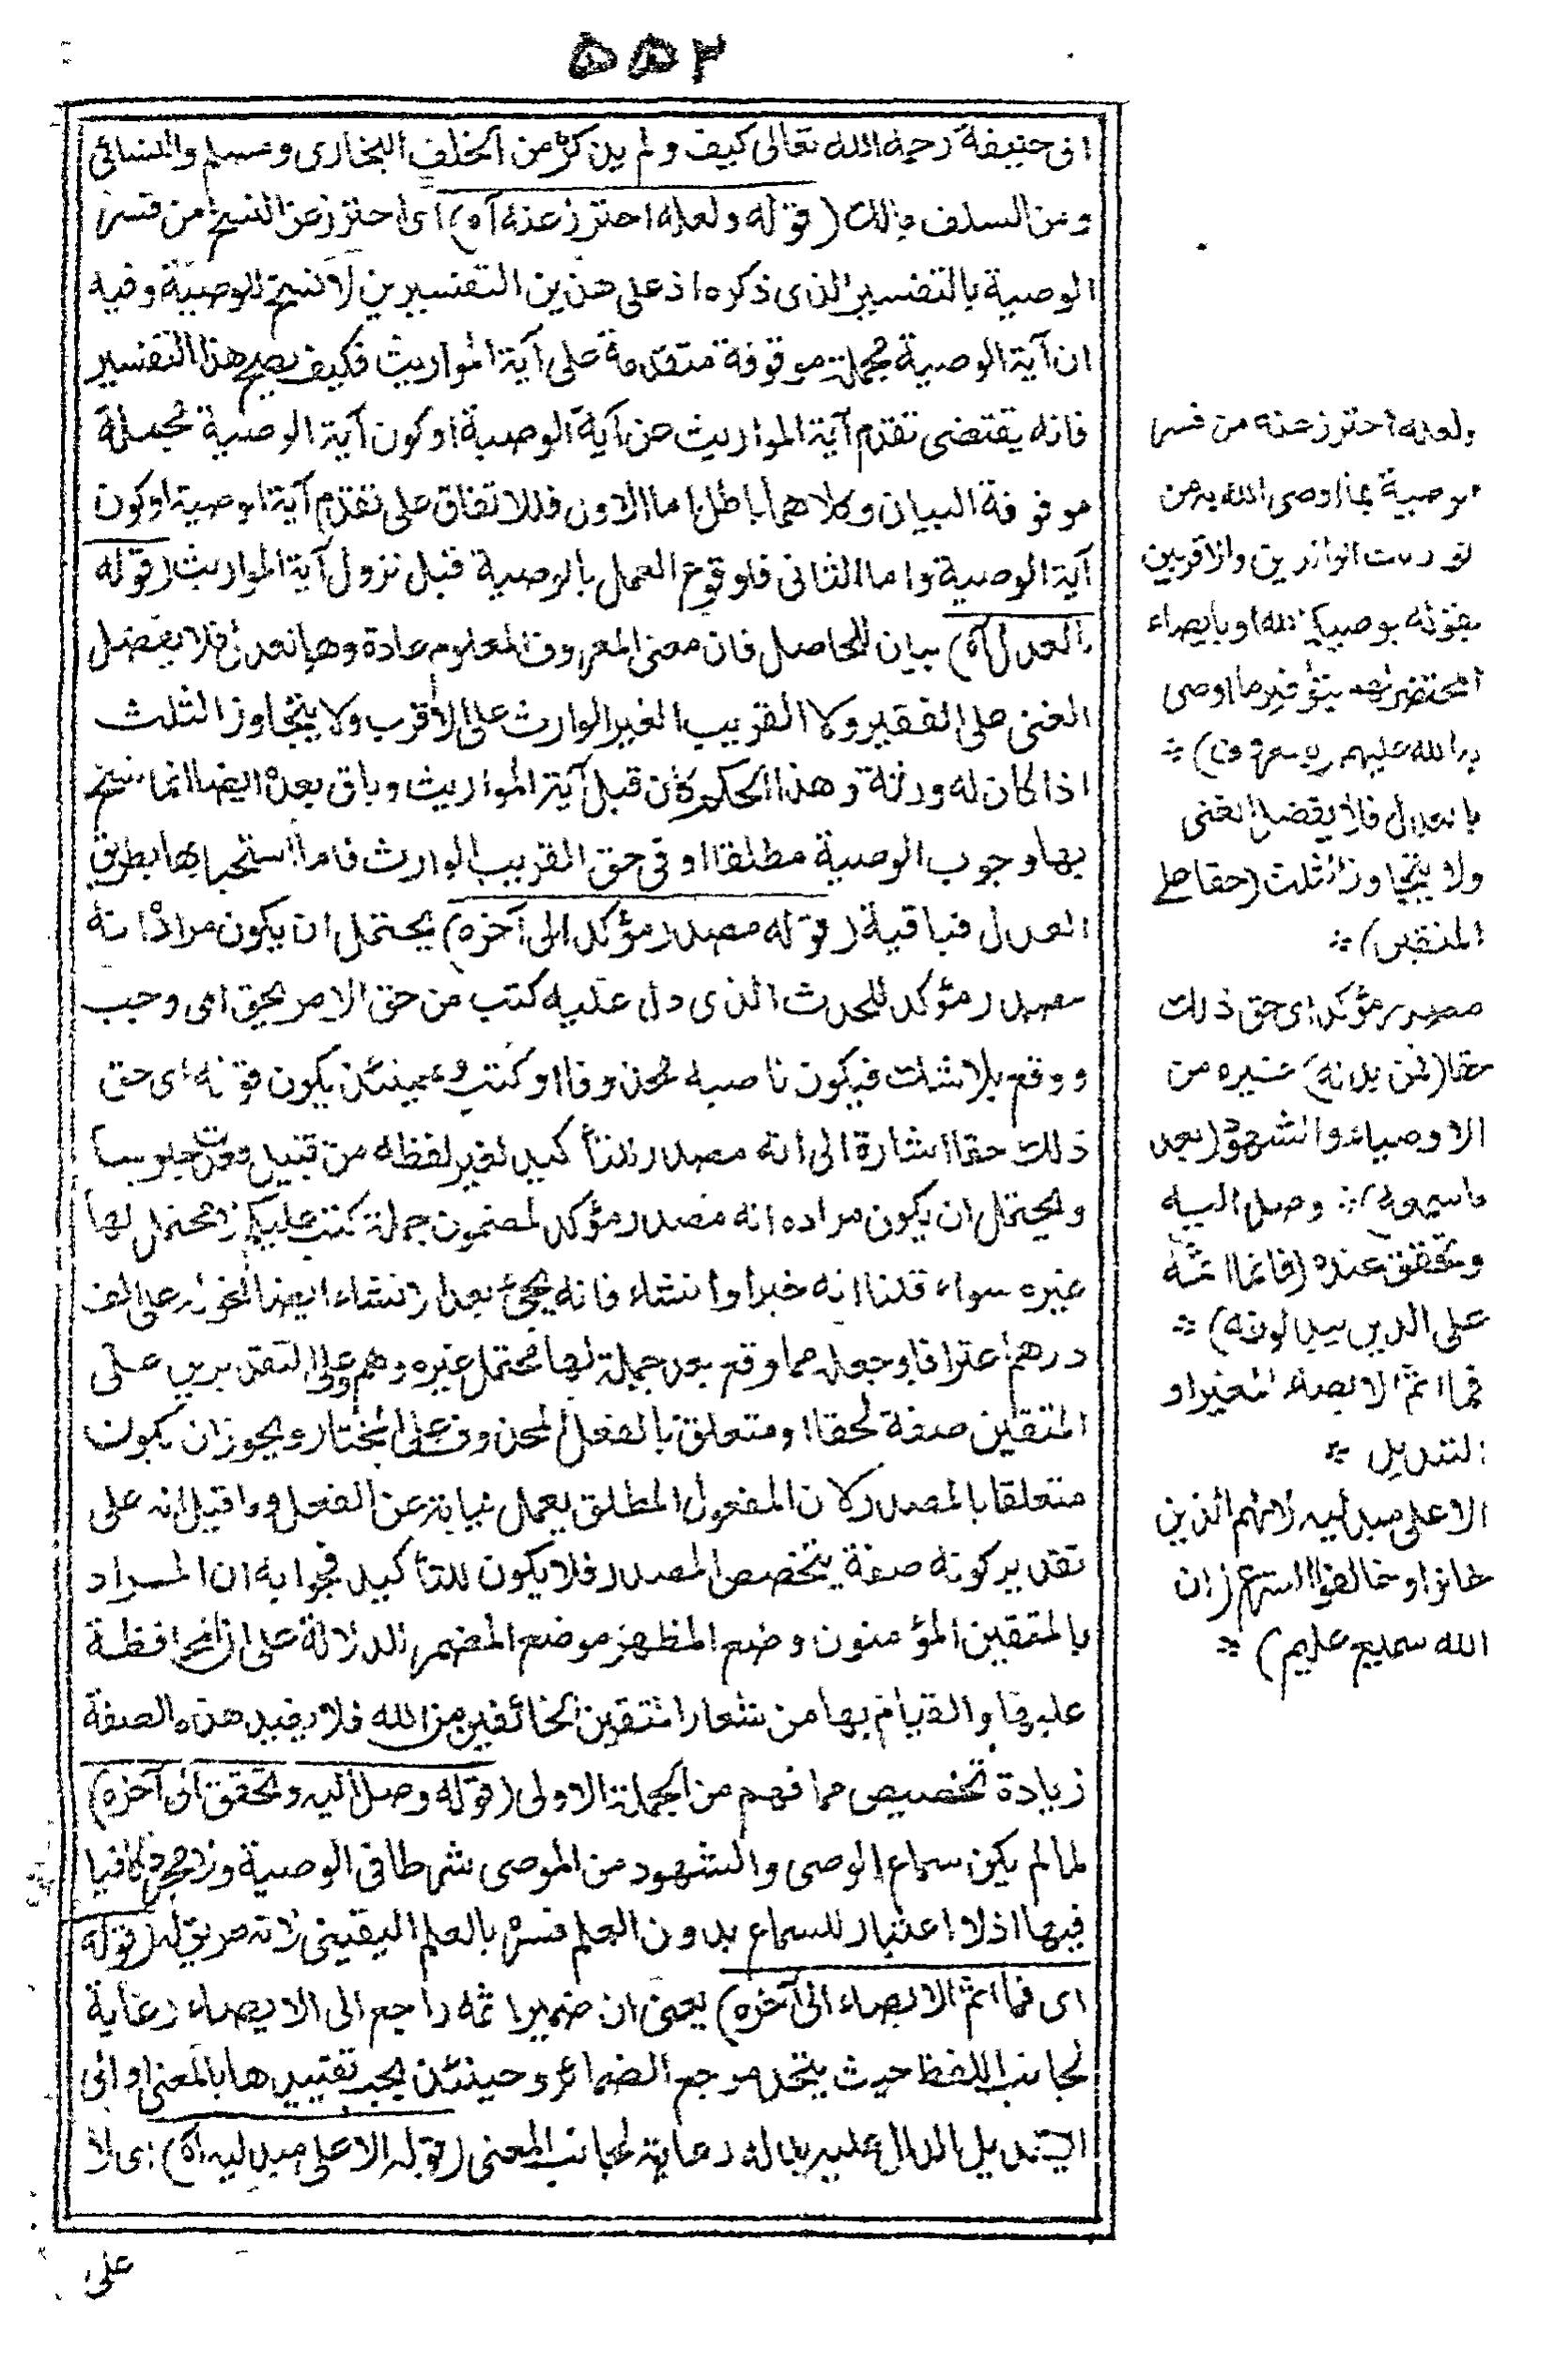 ٥٥٢
ابى حنيفة رحمه الله تعالى كيف ولم يذكره من الخلف البخارى ومسلم والنسائى
ومن السلف مالك (قوله ولعله احترز عنه آه) اى احترز عن النسخ من فسر
الوصية بالتفسير الذى ذكره اذ على هذين التفسيرين لا نسخ للوصية وفيه
ان آية الوصية مجملة موقوفة متقدمة على آية المواريث فكيف يصح هذا التفسير
فانه يقتضى تقدم آية المواريث من آية الوصية او كون آية الوصية مجملة
موقوفة البيان وكلاهما باطل اما الاول فللاتفاق على تقدم آية الوصية او كون
آية الوصية واما الثانى فلوقوع العمل بالوصية قبل نزول آية المواريث (قوله
بالعدل آه) بيان للحاصل فان معنى المعروف المعلوم عادة وهو العدل فلا يفضل
الغنى على الفقير ولا القريب الغير الوارث على الاقرب ولا يتجاوز الثلث
اذا كان له ورثة وهذا الحكم كان قبل آية المواريث وباق بعده ايضا انما نسخ
بها وجوب الوصية مطلقا او فى حق القريب الوارث فاما استحبابها بطريق
العدل فباقية (قوله مصدر مؤكد الى آخره) يحتمل ان يكون مراده انه
مصدر مؤكد للحدث الذى دل عليه كتب من حق الامر يحق اى وجب
ووقع بلا شك فيكون ناصبه محذوفا او كتب وحينئذ يكون قوله اى حق
ذلك حقا اشارة الى انه مصدر للتأكيد لغير لفظه من قبيل قعدت جلوسا
ويحتمل ان يكون مراده انه مصدر مؤكد لمضمون جملة كتب عليكم لا محتمل لها
غيره سواء قلنا انه خبر او انشاء فانه يجئ بعد الانشاء ايضا نحو له على الف
درهم اعترافا وجعله مما وقع بعد جملة لها محتمل غيره وهم وعلى التقديرين على
المتقين صفة لحقا او متعلق بالفعل المحذوف على المختار ويجوز ان يكون
متعلقا بالمصدر لان المفعول المطلق يعمل نيابة عن الفعل وما قيل انه على
تقدير كونه صفة يتخصص المصدر فلا يكون للتأكيد فجوابه ان المراد
بالمتقين المؤمنون وضع المظهر موضع المضمر للدلالة على ان المحافظة
عليها والقيام بها من شعار المتقين الخائفين من الله فلا يفيد هذه الصفة
زيادة تخصيص مما فهم من الجملة الاولى (قوله وصل اليه وتحقق الى آخره)
لما لم يكن سماع الوصى والشهود من الموصى شرطا فى الوصية ولا مجرده كافيا
فيها اذ لا اعتبار للسماع بدون العلم فسره بالعلم اليقينى لانه طريق له (قوله
اى فما اثم الايصاء الى آخره) يعنى ان ضمير اثمه راجع الى الايصاء رعاية
لجانب اللفظ حيث يتحد مرجع الضمائر وحينئذ يجب تقييدها بالمعنى او الى
التبديل الدال عليه بدله رعاية لجانب المعنى (قوله الا على مبدليه آه) اى لا
على
ولعله احترز عنه من فسر
الوصية بما اوصى الله به من
توريث الوالدين والاقربين
بقوله يوصيكم الله او بايصاء
المحتضر لهم بتوفير ما اوصى
به الله عليهم (بالمعروف) *
بالعدل فلا يفضل الغنى
ولا يتجاوز الثلث (حقا على
المتقين) *
مصدر مؤكد اى حق ذلك
حقا (فمن بدله) غيره من
الاوصياء والشهود (بعد
ما سمعه) * وصل اليه
وتحقق عنده (فانما اثمه
على الذين يبدلونه) *
فما اثم الايصاء المغير او
التبديل *
الا على مبدليه لانهم الذين
خانوا وخالفوا الشرع (ان
الله سميع عليم) *